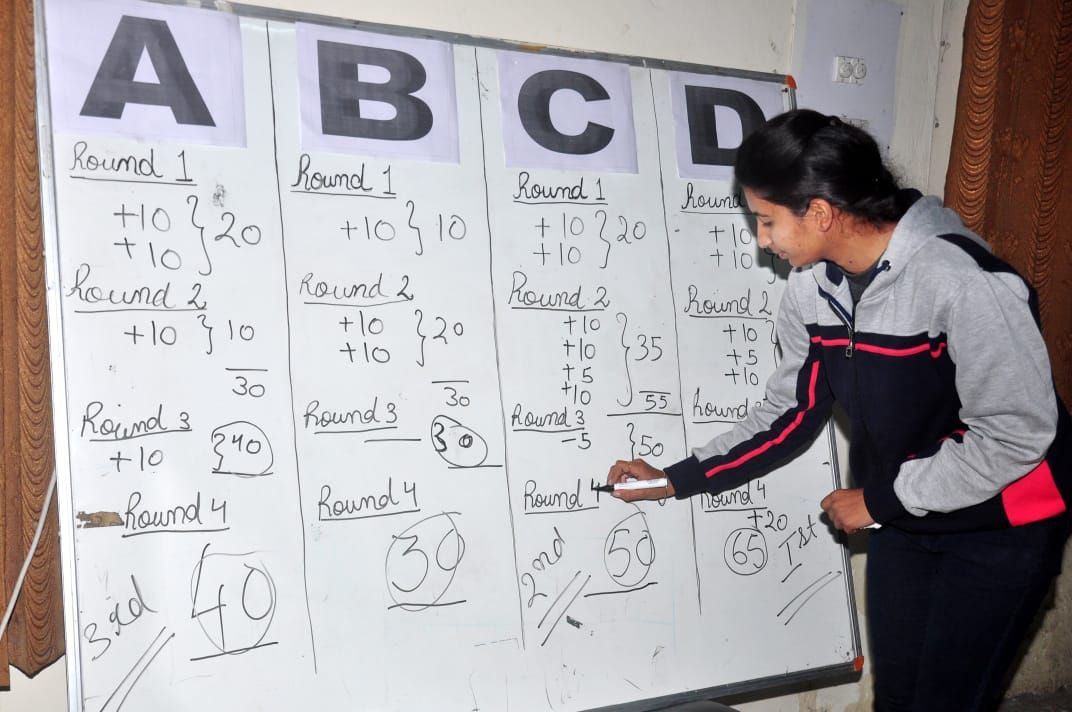 A
Round 1
+10
+10 } 20
Round 2
+10 } 10
30
Round 3
+10 } 40
Round 4
3rd 40
B
Round 1
+10 } 10
Round 2
+10
+10 } 20
30
Round 3 —
30
Round 4
30
C
Round 1
+10
+10 } 20
Round 2
+10
+10
+5
+10 } 35
55
Round 3
-5 } 50
Round 4
2nd 50
D
Round
+10
+10
Round 2
+10
+5
+10
Round
Round 4
+20
65 Ist